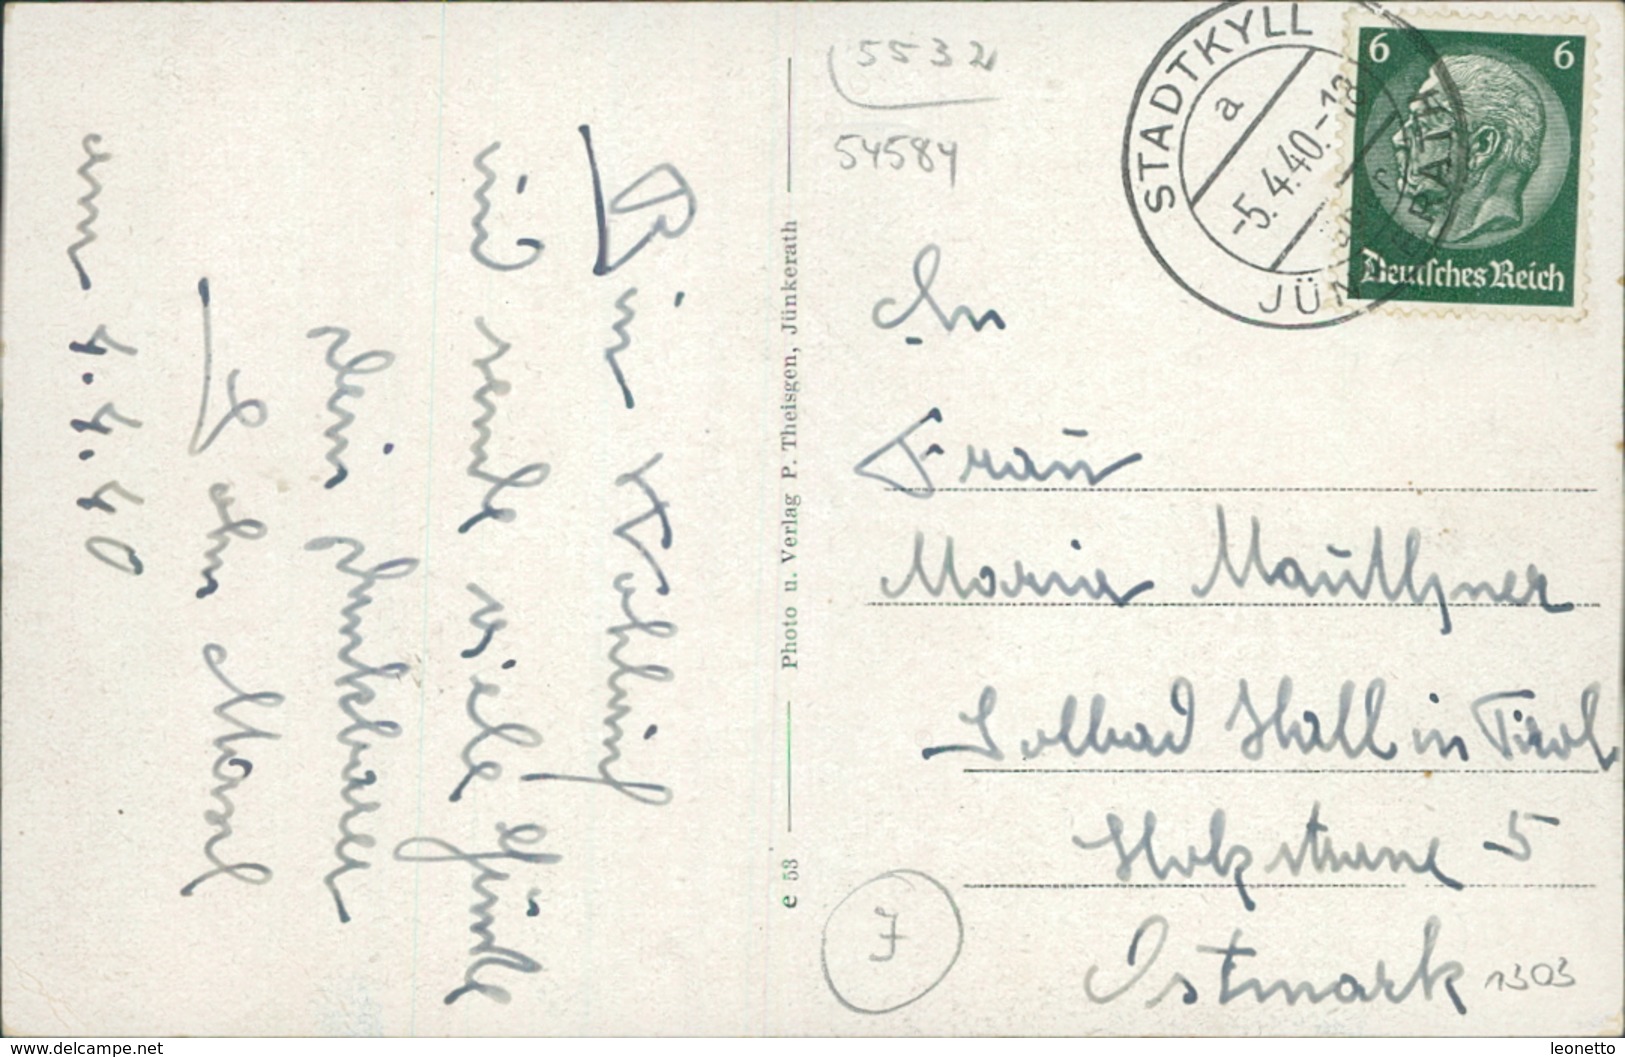 5532
54584
STADTKYLL
a
-5.4.40.-18
JÜNKERATH
6 6
Deutsches Reich
An
Frau
Maria Mauthner
Solbad Hall in Tirol
Holzstrasse 5
Ostmark
1303
7
e 53 Photo u. Verlag P. Theisgen, Jünkerath
Bin
und sende viele Grüße
Dein dankbarer
Sohn
am 4.4.40
www.delcampe.net
leonetto